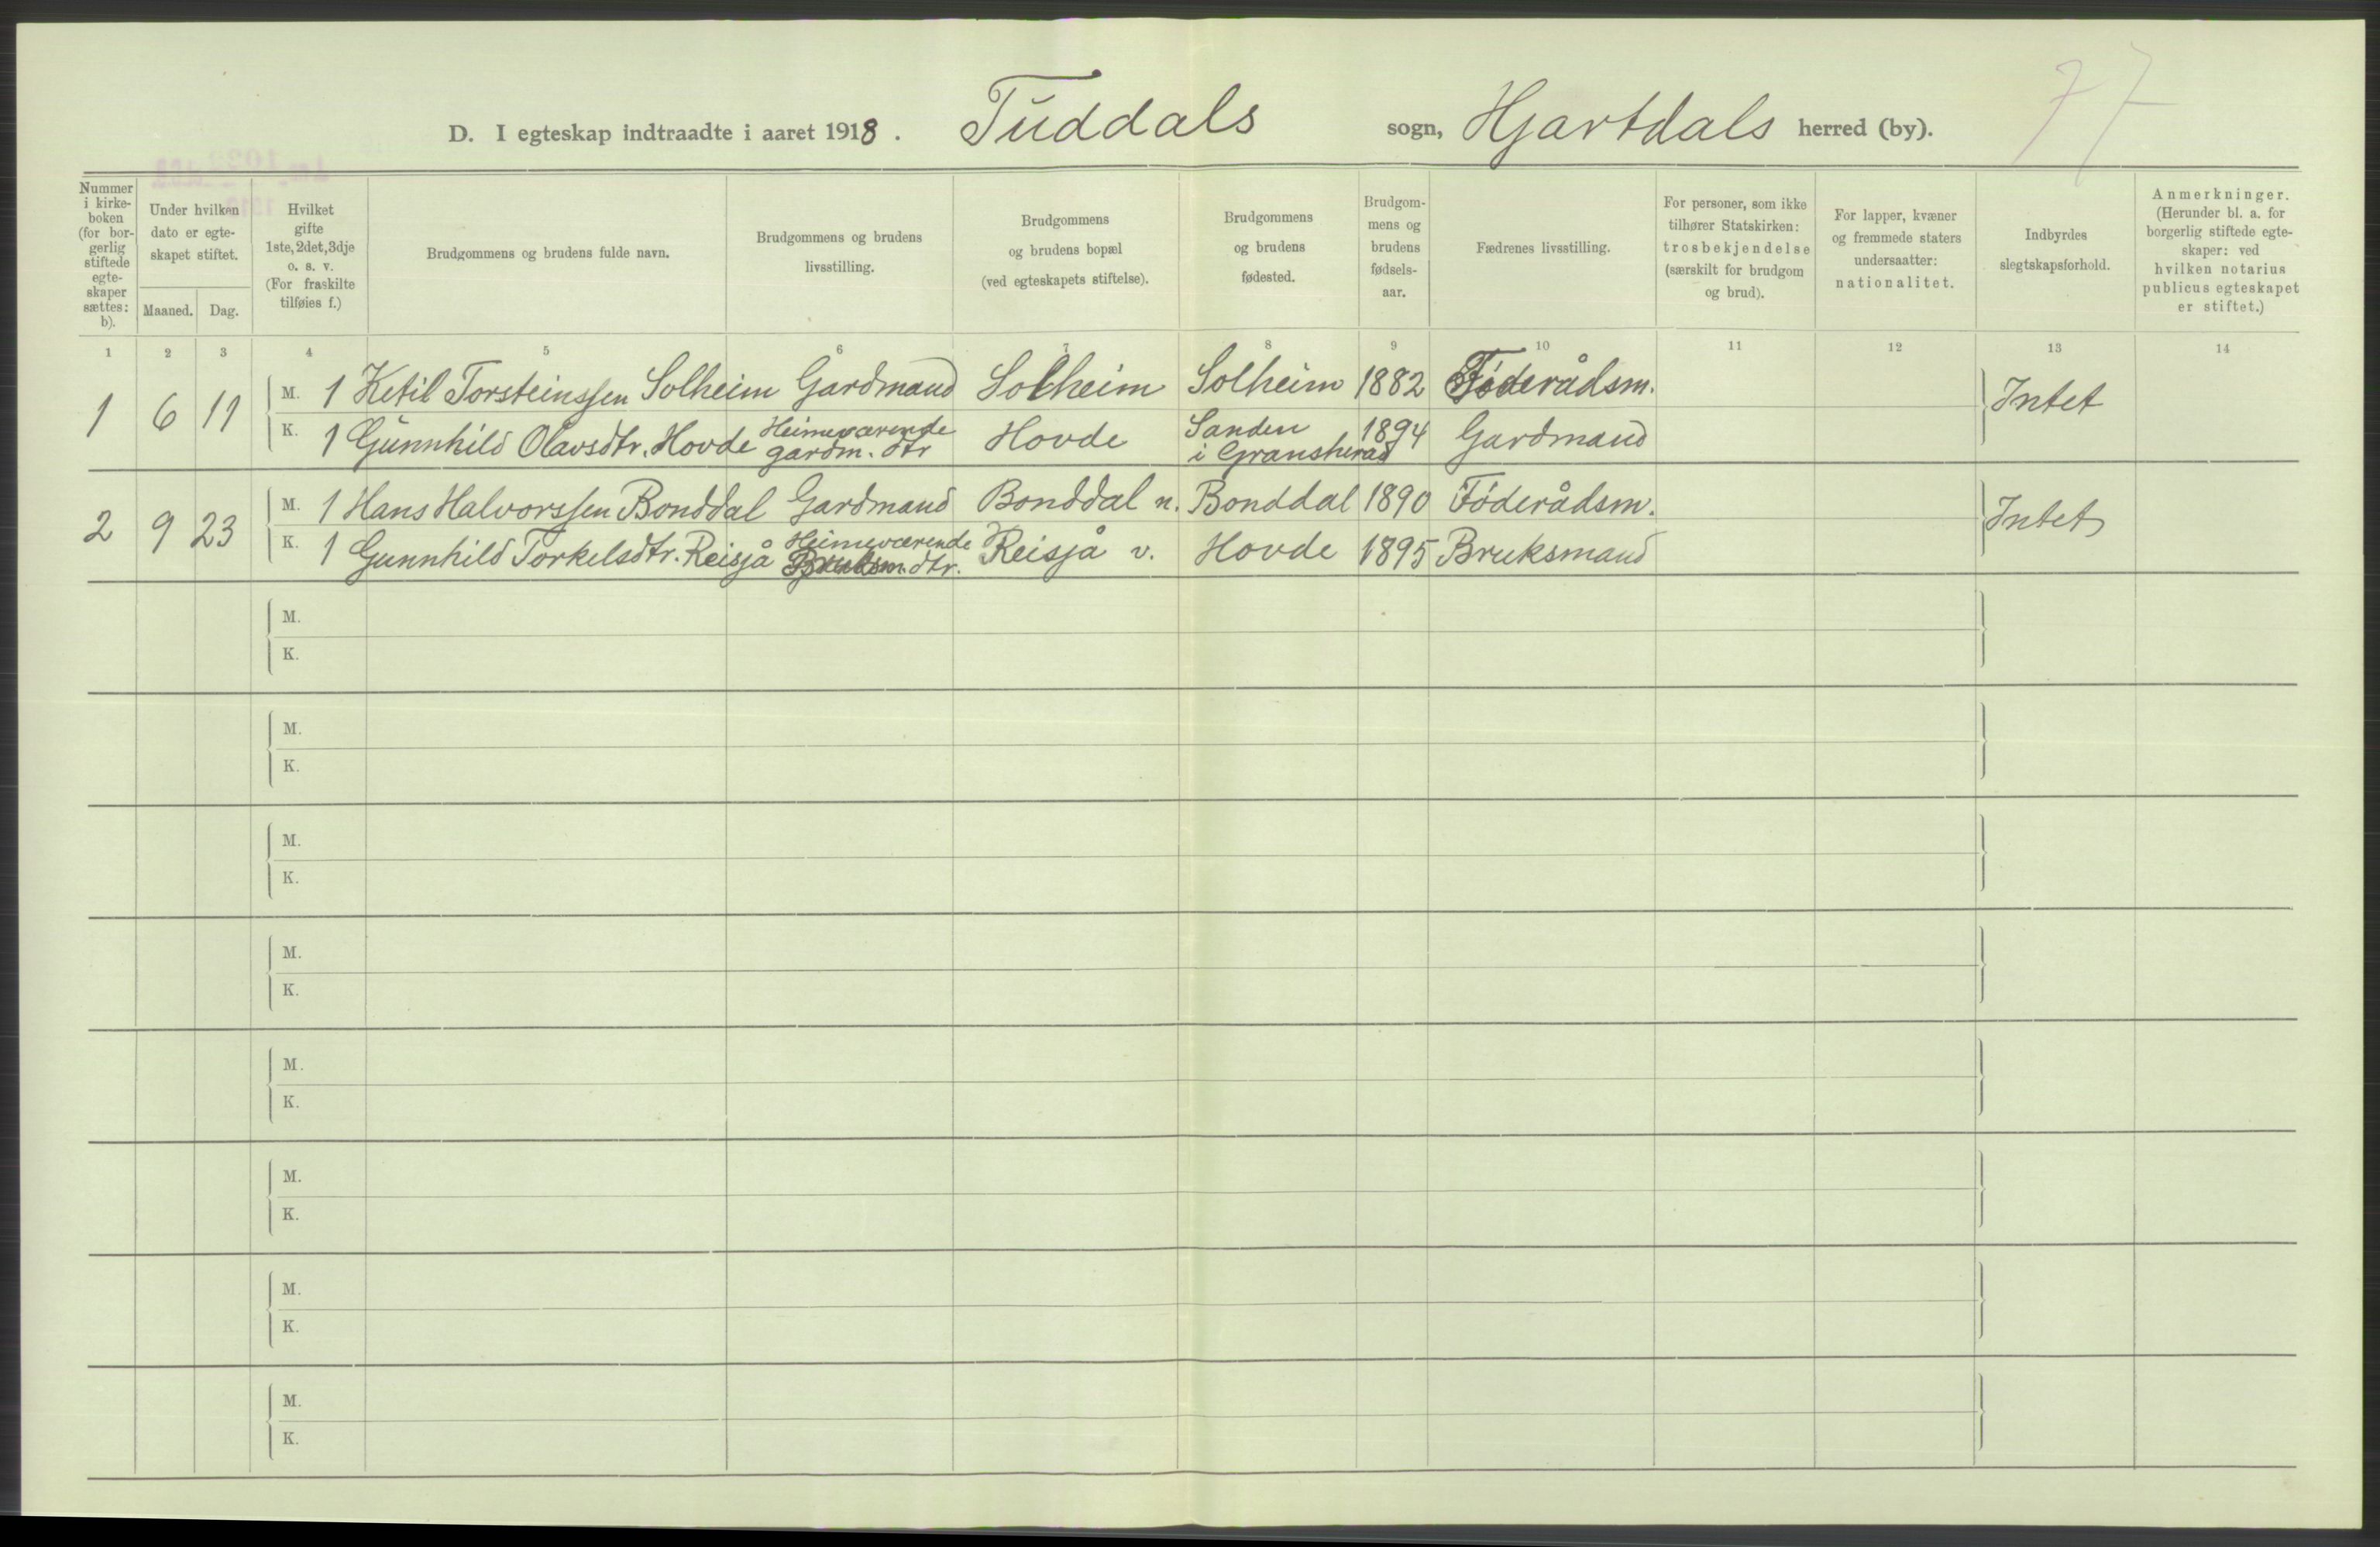 D. I egteskap indtraadte i aaret 1918. Tuddals sogn, Hjartdals herred (by). 77
Nummer
i kirke-
boken
(for bor-
gerlig
stiftede
egte-
skaper
sættes:
b).
Under hvilken
dato er egte-
skapet stiftet.
Maaned. Dag.
Hvilket
gifte
1ste, 2det, 3dje
o. s. v.
(For fraskilte
tilføies f.)
Brudgommens og brudens fulde navn.
Brudgommens og brudens
livsstilling.
Brudgommens
og brudens bopæl
(ved egteskapets stiftelse).
Brudgommens
og brudens
fødested.
Brudgom-
mens og
brudens
fødsels-
aar.
Fædrenes livsstilling.
For personer, som ikke
tilhører Statskirken:
trosbekjendelse
(særskilt for brudgom
og brud).
For lapper, kvæner
og fremmede staters
undersaatter:
nationalitet.
Indbyrdes
slegtskapsforhold.
Anmerkninger.
(Herunder bl. a. for
borgerlig stiftede egte-
skaper: ved
hvilken notarius
publicus egteskapet
er stiftet.)
1 2 3 4 5 6 7 8 9 10 11 12 13 14
1 6 11 M. 1 Ketil Torsteinssen Solheim Gardmand Solheim Solheim 1882 Föderådsm. Intet
K. 1 Gunnhild Olavsdtr. Hovde Heimeværende gardm. dtr Hovde Sanden i Gransherad 1894 Gardmand
2 9 23 M. 1 Hans Halvorssen Bonddal Gardmand Bonddal n. Bonddal 1890 Föderådsm. Intet
K. 1 Gunnhild Torkelsdtr. Reisjå Heimeværende Bruksm. dtr. Reisjå v. Hovde 1895 Bruksmand
M.
K.
M.
K.
M.
K.
M.
K.
M.
K.
M.
K.
M.
K.
M.
K.